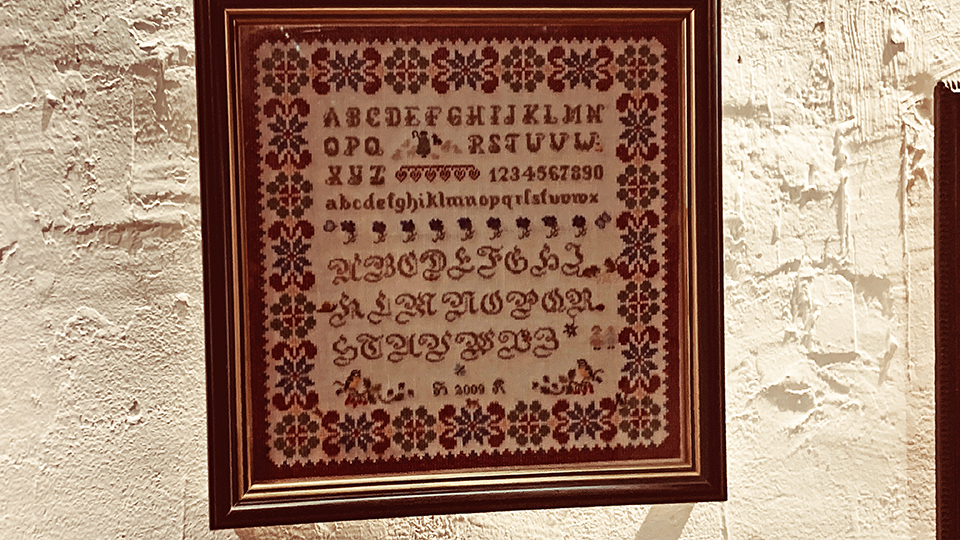 ABCDEFGHIJKLMN
OPQ RSTUVW
XYZ 1234567890
abcdefghiklmnopqrſstuvwx
ABCDEFGHI
KLMNOPQR
STUVWXYZ
2009 R